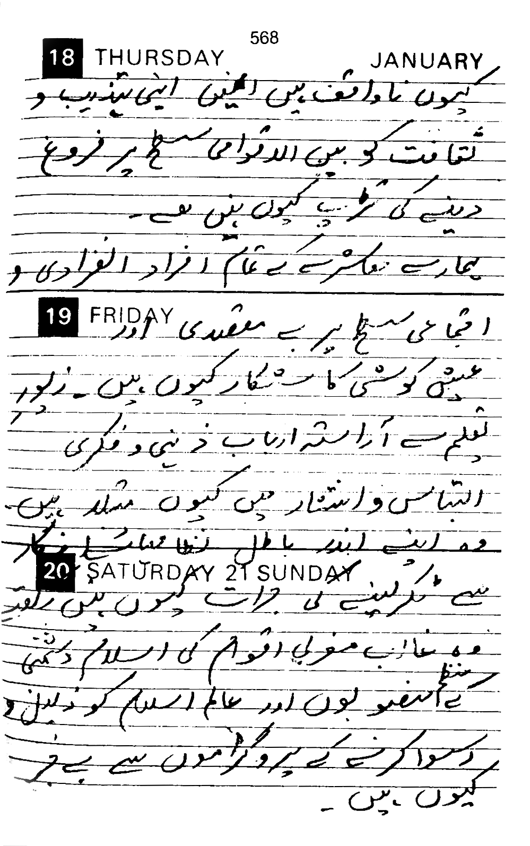 568
18 THURSDAY JANUARY
کیوں ناواقف ہیں انہیں اپنی تہذیب و
ثقافت کو بین الاقوامی سطح پر فروغ
دینے کی تڑپ کیوں نہیں ہے۔
ہمارے معاشرے کے تمام افراد انفرادی و
19 FRIDAY
اجتماعی سطح پر بے مقصدی اور
عیش کوشی کا شکار کیوں ہیں۔ زیور
تعلیم سے آراستہ ارباب ذہنی و فکری
التباس و انتشار میں کیوں مبتلا ہیں۔
وہ اپنے اندر باطل نظامہائے
20 SATURDAY 21 SUNDAY
سے ٹکر لینے کی جرات کیوں نہیں رکھتے
وہ مغربی اقوام کی اسلام دشمنی
کے منظم منصوبوں اور عالم اسلام کو ذلیل و
رسوا کرنے کے پروگراموں سے بے خبر
کیوں ہیں۔